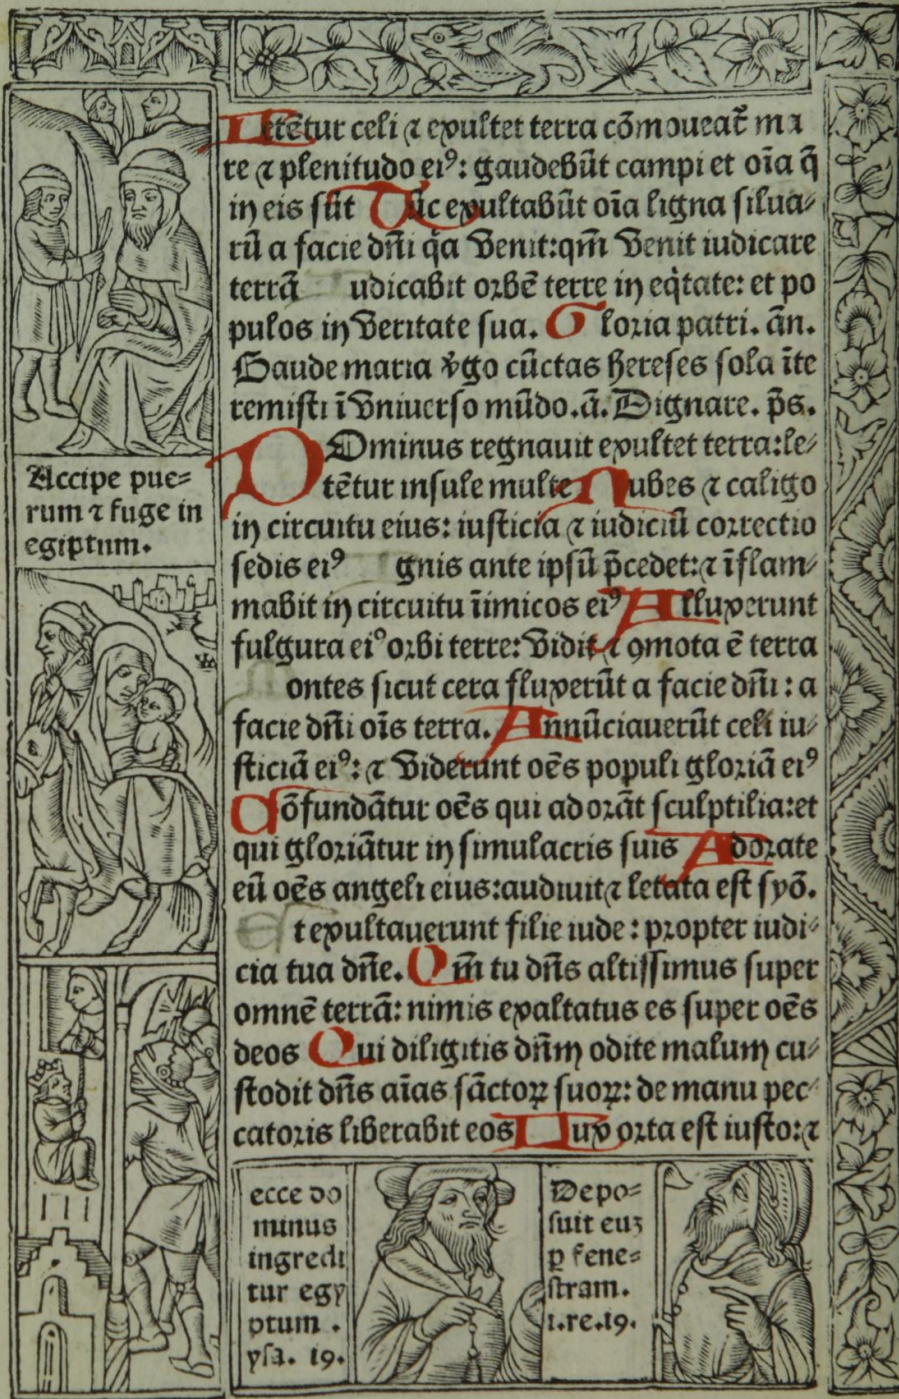 Letẽtur celi ⁊ exultet terra cõmoueat᷒ ma
re ⁊ plenitudo eiꝰ: gaudebũt campi et oĩa q̃
in eis sũt Tũc exultabũt oĩa ligna silua⸗
rũ a facie dñi q̃a venit:qm̃ venit iudicare
terrã udicabit orbẽ terre in eq̃tate: et po
pulos in veritate sua. Gloria patri. ãn.
Gaude maria v̾go cũctas hereses sola ĩte
remisti ĩ vniuerso mũdo.ã. Dignare. p̃s.
DOminus regnauit exultet terra:le⸗
tẽtur insule multe Nubes ⁊ caligo
in circuitu eius: iusticia ⁊ iudiciũ correctio
sedis eiꝰ gnis ante ipsũ p̃cedet:⁊ ĩflam⸗
mabit in circuitu ĩimicos eiꝰ Alluxerunt
fulgura eiꝰ orbi terre: vidit ⁊ ꝯmota ẽ terra
ontes sicut cera fluxerũt a facie dñi : a
facie dñi oĩs terra. Annũciauerũt celi iu⸗
sticiã eiꝰ: ⁊ viderunt oẽs populi gloriã eiꝰ
Cõfundãtur oẽs qui adorãt sculptilia:et
qui gloriãtur in simulacris suis Adorate
eũ oẽs angeli eius:audiuit ⁊ letata est syõ.
Et exultauerunt filie iude : propter iudi⸗
cia tua dñe. Qm̃ tu dñs altissimus super
omnẽ terrã: nimis exaltatus es super oẽs
deos Qui diligitis dñm odite malum cu⸗
stodit dñs aĩas sãctoꝝ suoꝝ: de manu pec⸗
catoris liberabit eos Lux orta est iusto: ⁊
Accipe pue⸗
rum ⁊ fuge in
egiptum.
ecce do
minus
ingredi
tur egy
ptum .
ysa. 19.
Depo⸗
suit euꝫ
ꝑ fene⸗
stram.
1.re.19.